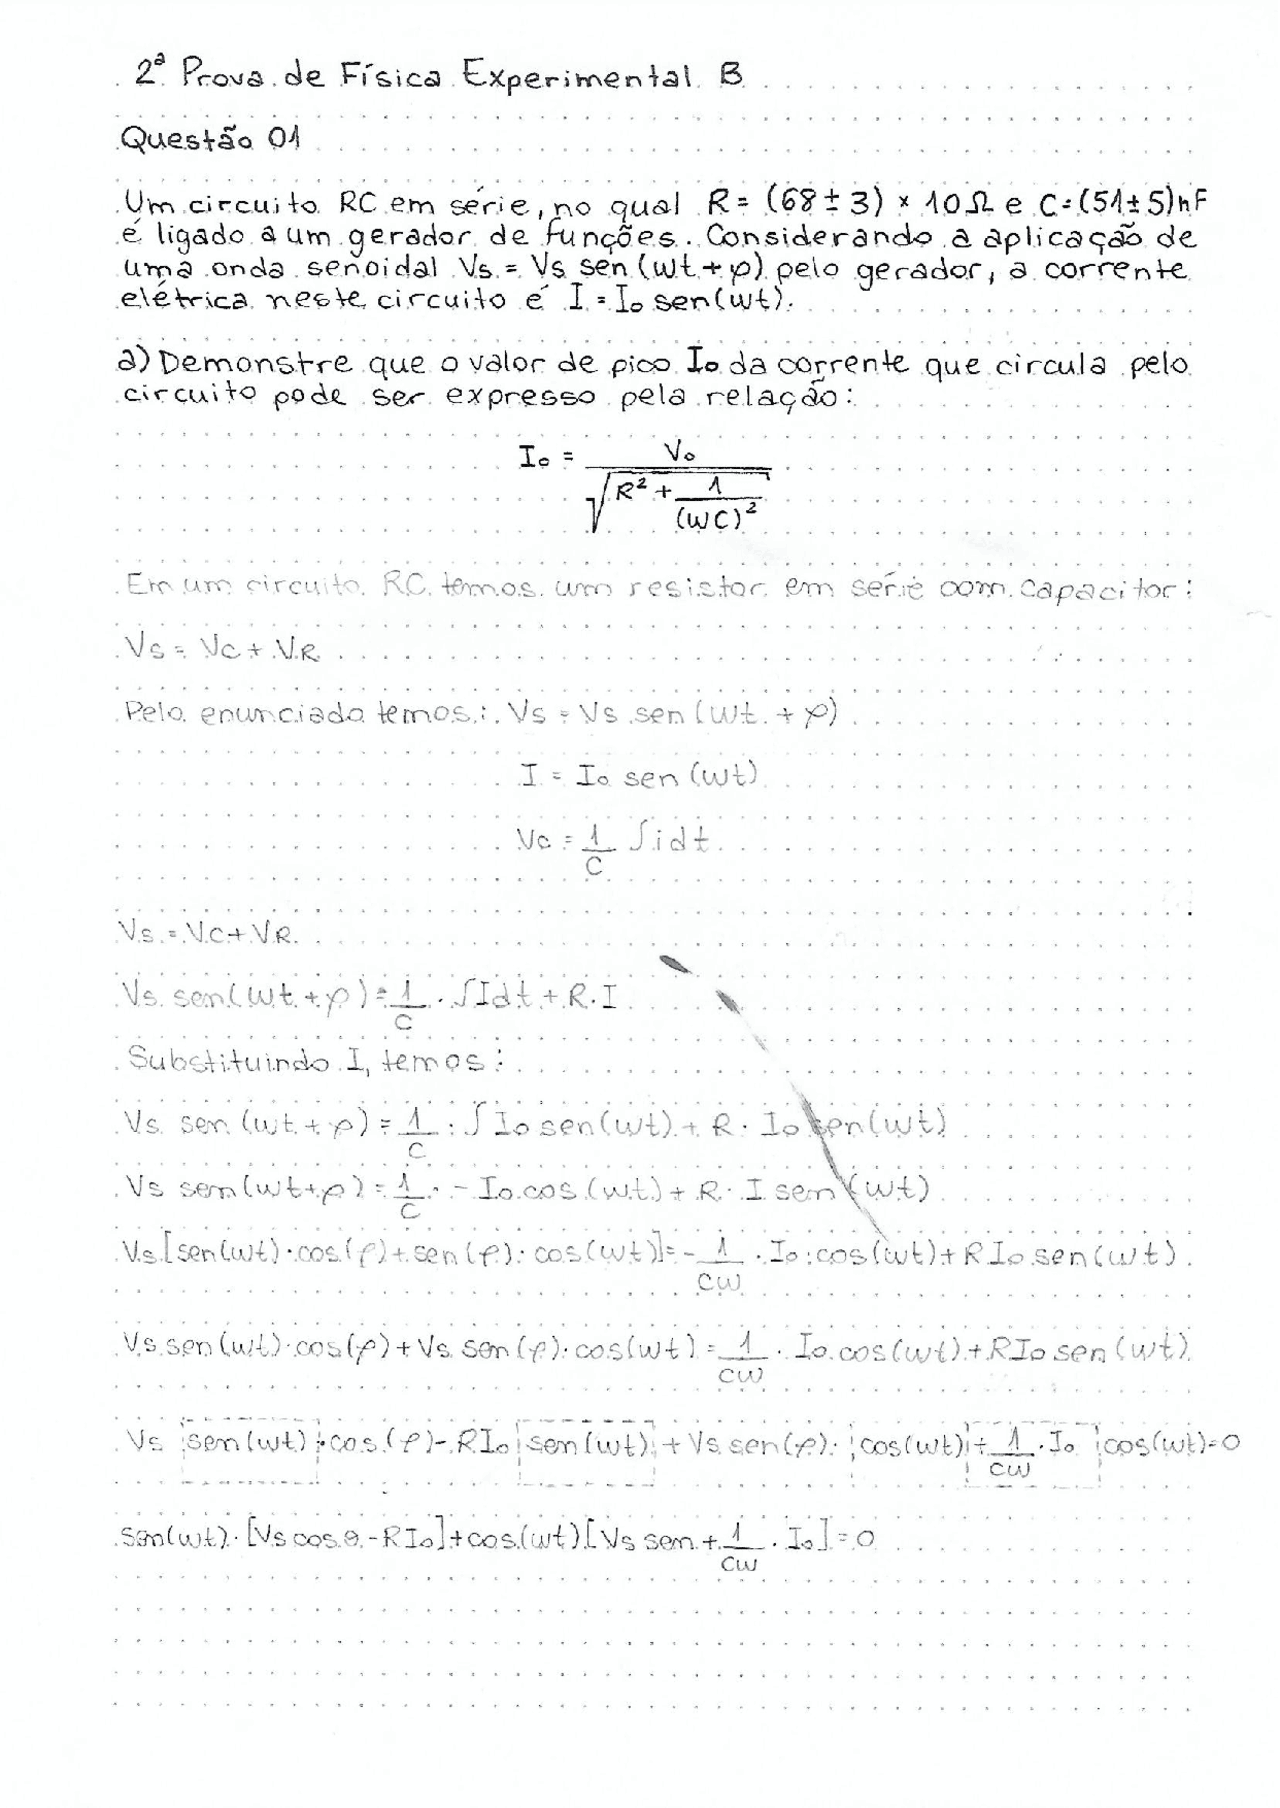 2ª Prova de Física Experimental B
Questão 01
Um circuito RC em série, no qual R = (68 ± 3) × 10 Ω e C = (51 ± 5) nF
é ligado a um gerador de funções. Considerando a aplicação de
uma onda senoidal Vs = Vs sen (wt + φ) pelo gerador, a corrente
elétrica neste circuito é I = I₀ sen(wt).
a) Demonstre que o valor de pico I₀ da corrente que circula pelo
circuito pode ser expresso pela relação:
I₀ = V₀ / √(R² + 1/(WC)²)
Em um circuito RC temos um resistor em série com capacitor:
Vs = Vc + VR
Pelo enunciado temos: Vs = Vs sen (wt + φ)
I = I₀ sen (wt)
Vc = 1/C ∫idt
Vs = Vc + VR
Vs sen(wt + φ) = 1/C · ∫Idt + R·I
Substituindo I, temos:
Vs sen (wt + φ) = 1/C · ∫ I₀ sen(wt) + R · I₀ sen(wt)
Vs sem(wt+φ) = 1/C · - I₀ cos (wt) + R · I sem (wt)
Vs [sen(wt) · cos(φ) + sen(φ) · cos(wt)] = - 1/CW · I₀ · cos(wt) + R I₀ sen(wt)
Vs sen(wt) · cos(φ) + Vs sen(φ) · cos(wt) = 1/CW · I₀ cos(wt) + RI₀ sen(wt)
Vs sem(wt) · cos(φ) - RI₀ sem(wt) + Vs sen(φ) · cos(wt) + 1/CW · I₀ cos(wt) = 0
Sen(wt) · [Vs cos θ - RI₀] + cos(wt) [Vs sem + 1/CW · I₀] = 0